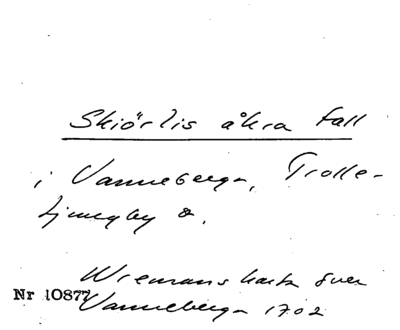 Skiörlis åkra fall
i Vanneberga, Trolle-
Ljungby s.
Wiemans karta över
Nr 10877
Vanneberga 1702